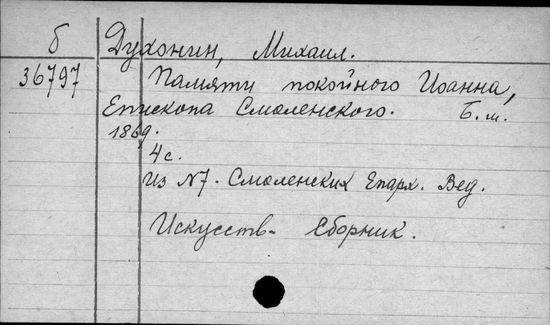 б Духонин, Михаил.
36797 Памяти покойного Иоанна,
Епископа Смоленского. Б.м.
1869.
4 с.
Из №7. Смоленских Епарх. Вед.
Искусств- Сборник.